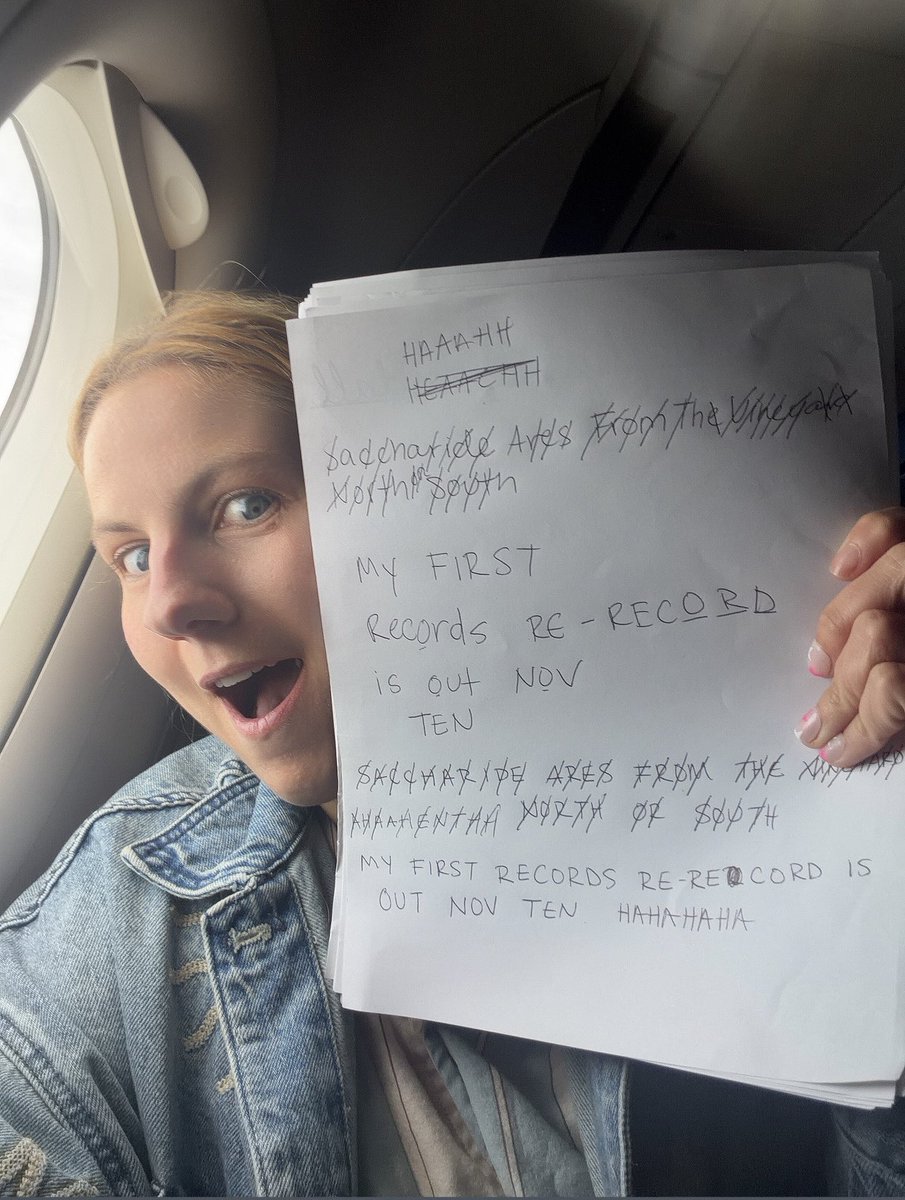 HAAAHH
HEAACHH
Saccharide Ares From The Vineyard
North or South
My FIRST
Records RE-RECORD
is out NOV
TEN
SACCHARIDE ARES FROM THE VINEYARD
NORTH OR SOUTH
MY FIRST RECORDS RE-RECORD IS
OUT NOV TEN HAHAHAHA